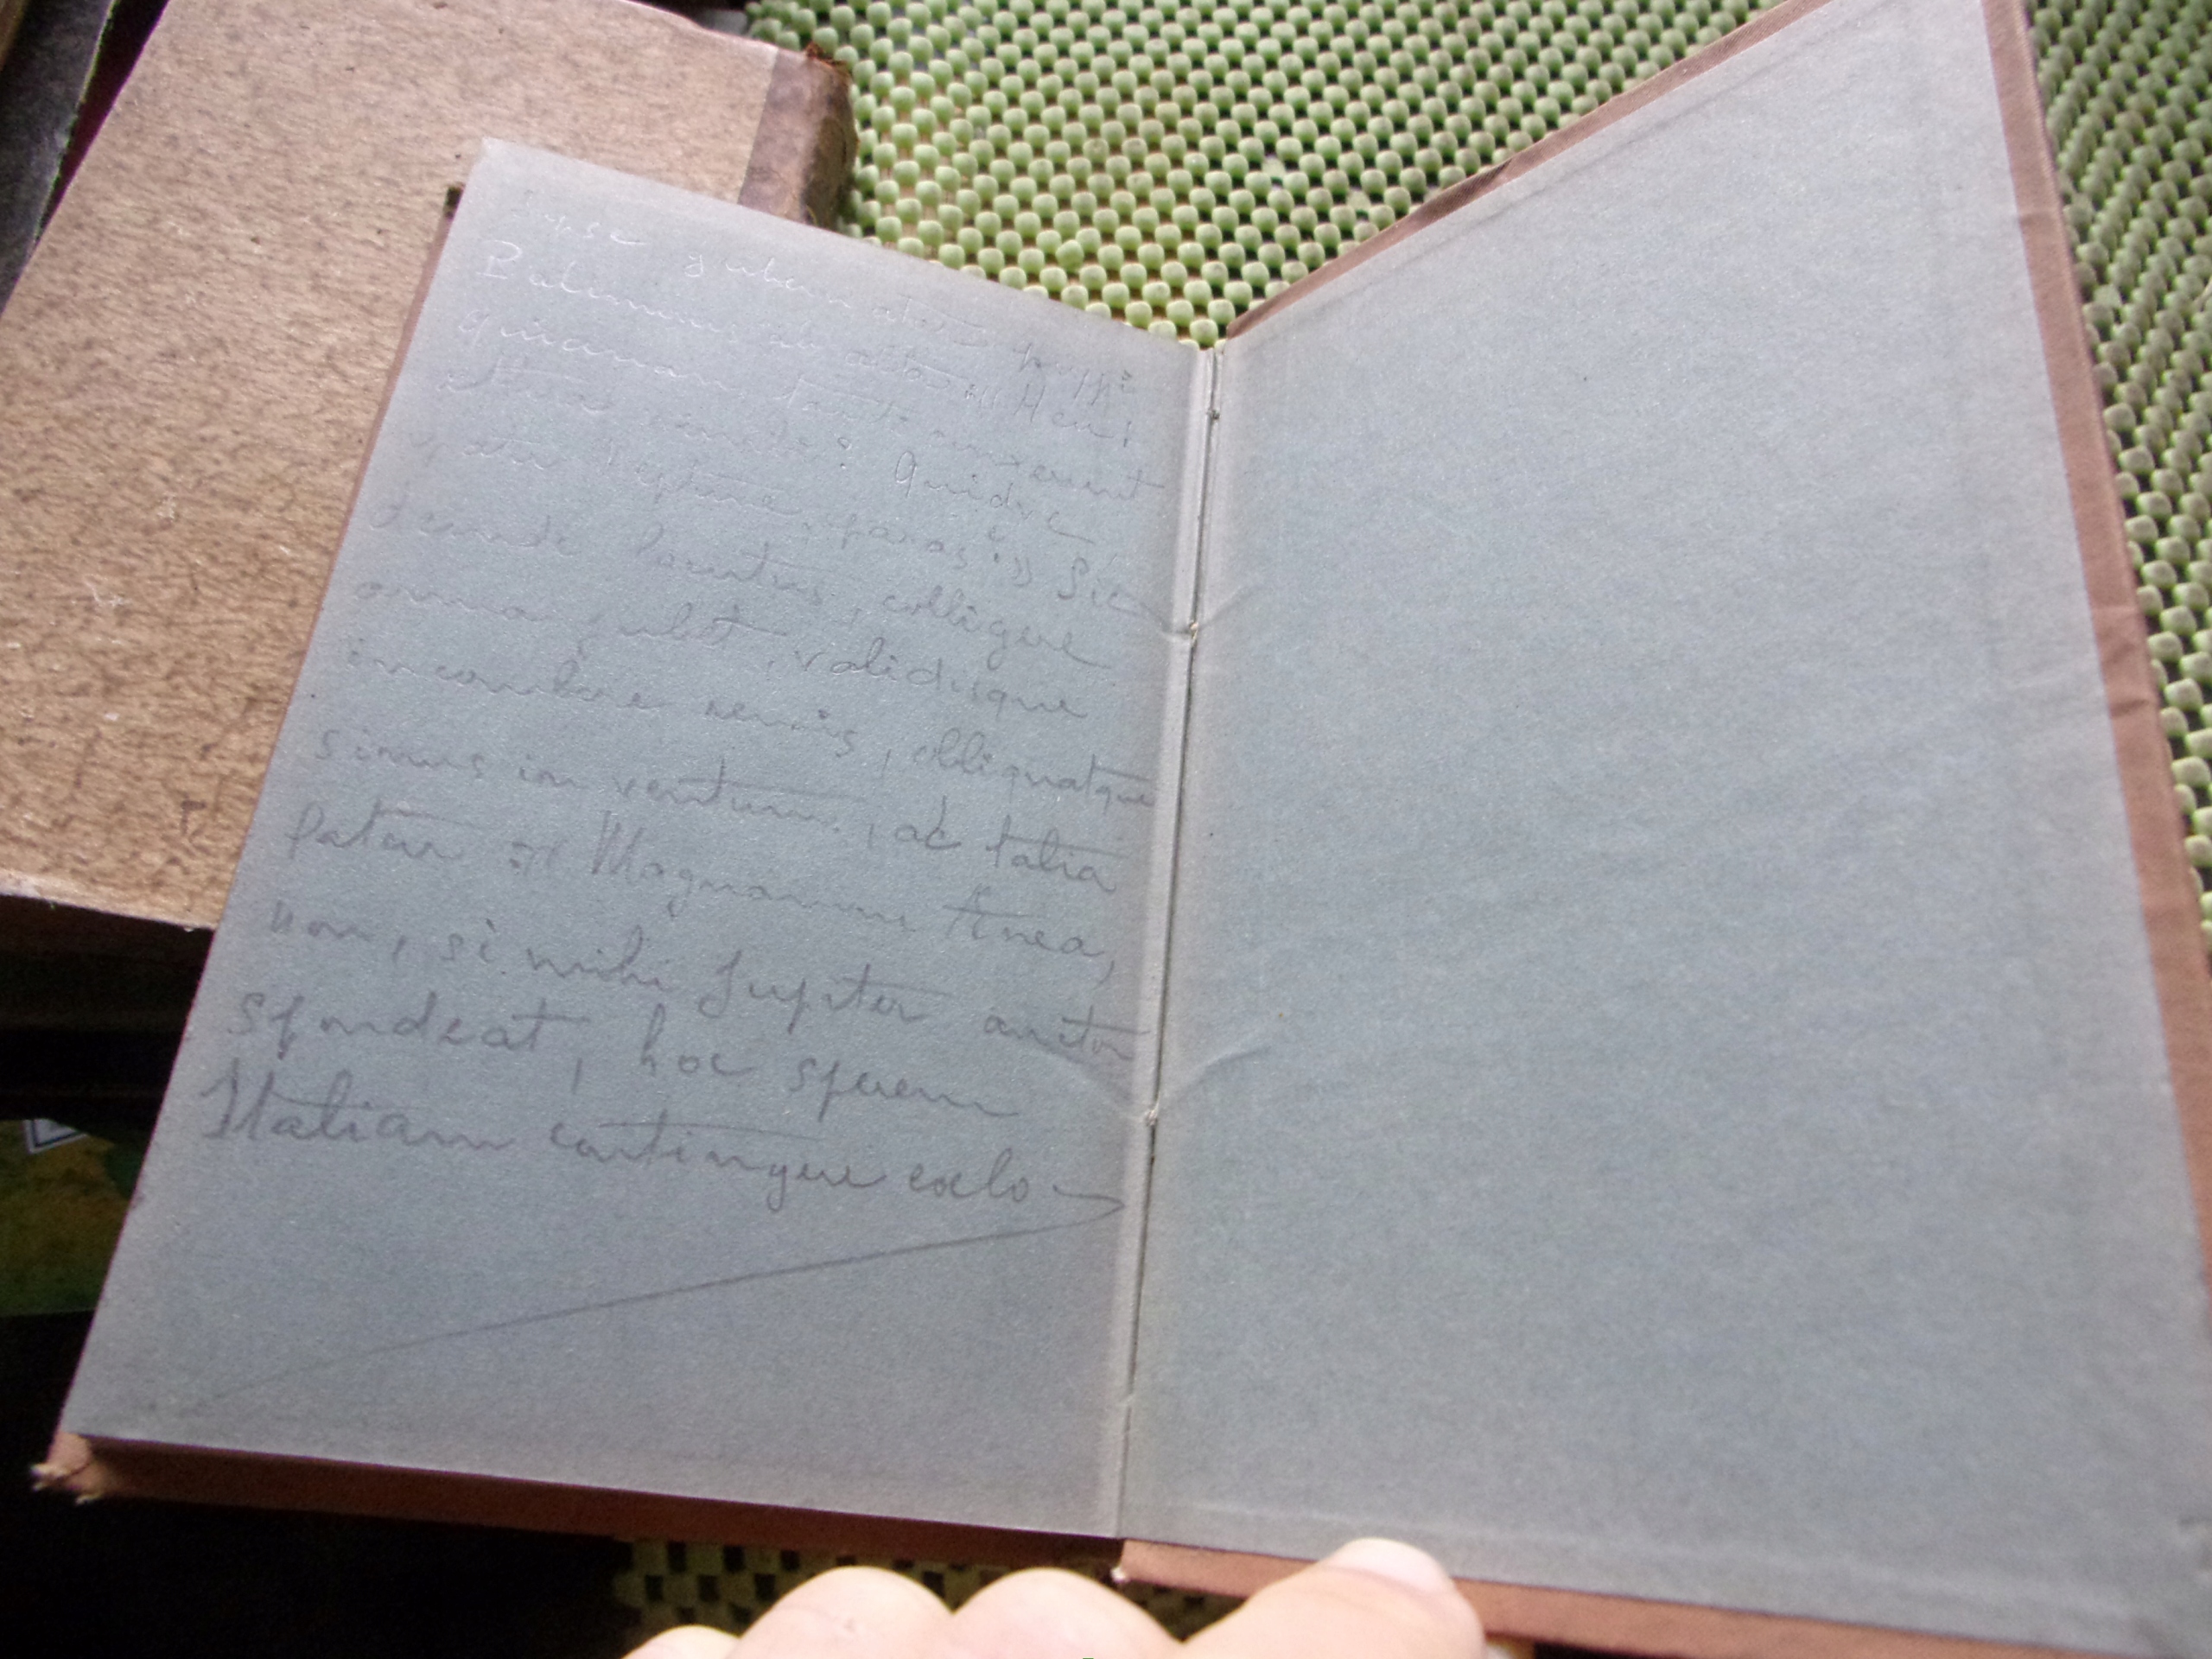 ipse gubernator puppi
Palinurus ab alta : « Heu !
quianam tanti cinxerunt
æthera nimbi ? Quidve
pater Neptune, paras ? » Sic
deinde locutus, colligere
arma jubet, validisque
incumbere remis, obliquatque
sinus in ventum, ac talia
fatur : « Magnanime Ænea,
non, si mihi Jupiter auctor
spondeat, hoc sperem
Italiam contingere cœlo